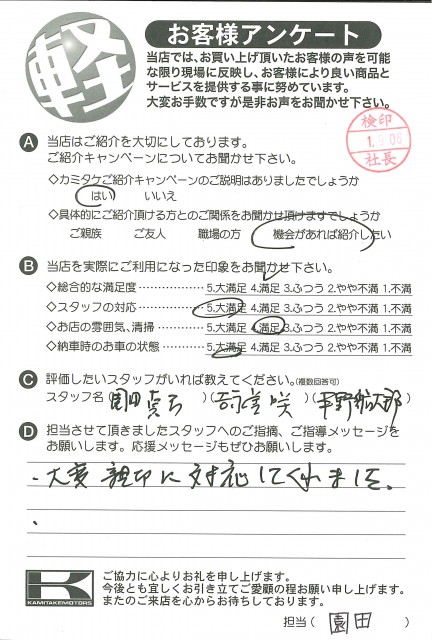 軽
お客様アンケート
当店では、お買い上げ頂いたお客様の声を可能
な限り現場に反映し、お客様により良い商品と
サービスを提供する事に努めています。
大変お手数ですが是非お声をお聞かせ下さい。
検印
1.9.06
社長
A 当店はご紹介を大切にしております。
ご紹介キャンペーンについてお聞かせ下さい。
◇カミタケご紹介キャンペーンのご説明はありましたでしょうか
はい いいえ
◇具体的にご紹介頂ける方とのご関係をお聞かせ頂けますでしょうか
ご親族 ご友人 職場の方 機会があれば紹介したい
B 当店を実際にご利用になった印象をお聞かせ下さい。
◇総合的な満足度 5.大満足 4.満足 3.ふつう 2.やや不満 1.不満
◇スタッフの対応 5.大満足 4.満足 3.ふつう 2.やや不満 1.不満
◇お店の雰囲気、清掃 5.大満足 4.満足 3.ふつう 2.やや不満 1.不満
◇納車時のお車の状態 5.大満足 4.満足 3.ふつう 2.やや不満 1.不満
C 評価したいスタッフがいれば教えてください。(複数回答可)
スタッフ名 ( 園田 ) ( 咲 ) ( 平野 )
D 担当させて頂きましたスタッフへのご指摘、ご指導メッセージを
お願いします。応援メッセージもぜひお願いします。
・大変親切に対応してくれました。
・
K
KAMITAKEMOTORS
ご協力に心よりお礼を申し上げます。
今後とも宜しくお引き立てご愛顧の程お願い申し上げます。
またのご来店を心からお待ちしております。
担当 ( 園田 )